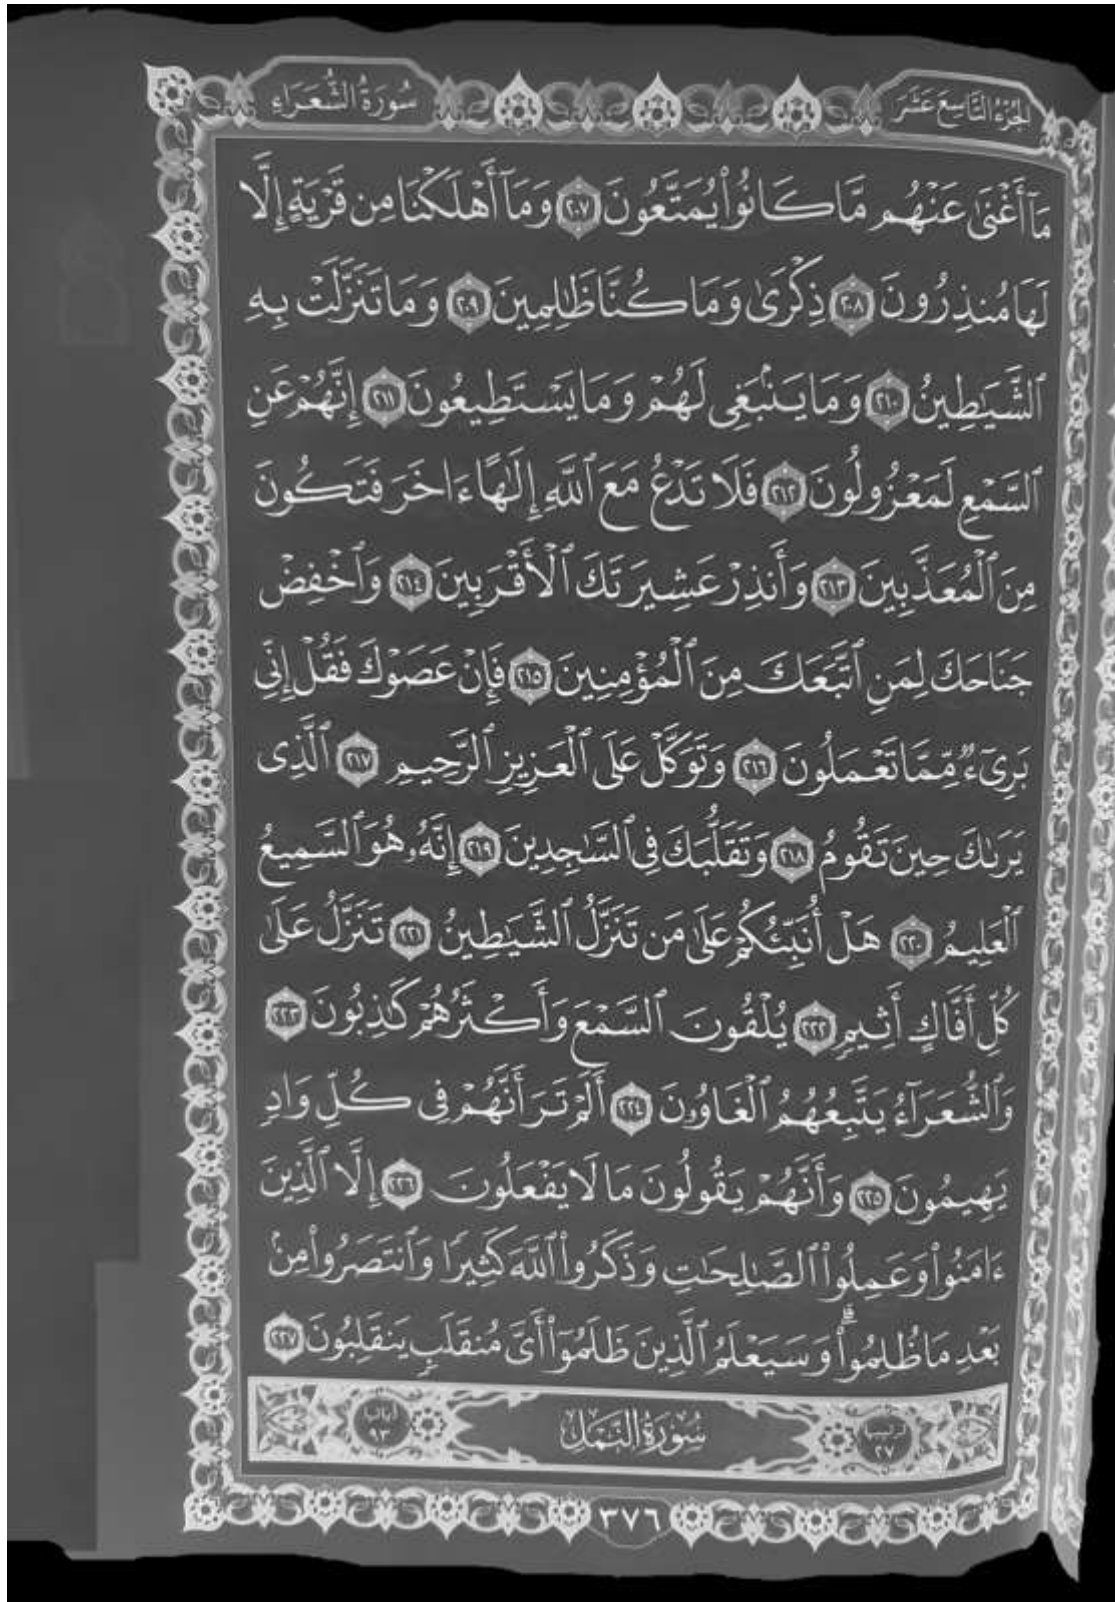 الجزء التاسع عشر
سورة الشعراء
مَآ أَغْنَىٰ عَنْهُم مَّا كَانُوا۟ يُمَتَّعُونَ ٢٠٧ وَمَآ أَهْلَكْنَا مِن قَرْيَةٍ إِلَّا
لَهَا مُنذِرُونَ ٢٠٨ ذِكْرَىٰ وَمَا كُنَّا ظَٰلِمِينَ ٢٠٩ وَمَا تَنَزَّلَتْ بِهِ
ٱلشَّيَٰطِينُ ٢١٠ وَمَا يَنۢبَغِى لَهُمْ وَمَا يَسْتَطِيعُونَ ٢١١ إِنَّهُمْ عَنِ
ٱلسَّمْعِ لَمَعْزُولُونَ ٢١٢ فَلَا تَدْعُ مَعَ ٱللَّهِ إِلَٰهًا ءَاخَرَ فَتَكُونَ
مِنَ ٱلْمُعَذَّبِينَ ٢١٣ وَأَنذِرْ عَشِيرَتَكَ ٱلْأَقْرَبِينَ ٢١٤ وَٱخْفِضْ
جَنَاحَكَ لِمَنِ ٱتَّبَعَكَ مِنَ ٱلْمُؤْمِنِينَ ٢١٥ فَإِنْ عَصَوْكَ فَقُلْ إِنِّى
بَرِىٓءٌ مِّمَّا تَعْمَلُونَ ٢١٦ وَتَوَكَّلْ عَلَى ٱلْعَزِيزِ ٱلرَّحِيمِ ٢١٧ ٱلَّذِى
يَرَىٰكَ حِينَ تَقُومُ ٢١٨ وَتَقَلُّبَكَ فِى ٱلسَّٰجِدِينَ ٢١٩ إِنَّهُۥ هُوَ ٱلسَّمِيعُ
ٱلْعَلِيمُ ٢٢٠ هَلْ أُنَبِّئُكُمْ عَلَىٰ مَن تَنَزَّلُ ٱلشَّيَٰطِينُ ٢٢١ تَنَزَّلُ عَلَىٰ
كُلِّ أَفَّاكٍ أَثِيمٍ ٢٢٢ يُلْقُونَ ٱلسَّمْعَ وَأَكْثَرُهُمْ كَٰذِبُونَ ٢٢٣
وَٱلشُّعَرَآءُ يَتَّبِعُهُمُ ٱلْغَاوُۥنَ ٢٢٤ أَلَمْ تَرَ أَنَّهُمْ فِى كُلِّ وَادٍ
يَهِيمُونَ ٢٢٥ وَأَنَّهُمْ يَقُولُونَ مَا لَا يَفْعَلُونَ ٢٢٦ إِلَّا ٱلَّذِينَ
ءَامَنُوا۟ وَعَمِلُوا۟ ٱلصَّٰلِحَٰتِ وَذَكَرُوا۟ ٱللَّهَ كَثِيرًا وَٱنتَصَرُوا۟ مِنۢ
بَعْدِ مَا ظُلِمُوا۟ ۗ وَسَيَعْلَمُ ٱلَّذِينَ ظَلَمُوٓا۟ أَىَّ مُنقَلَبٍ يَنقَلِبُونَ ٢٢٧
ترتيبها ٢٧
سورة النمل
آياتها ٩٣
٣٧٦